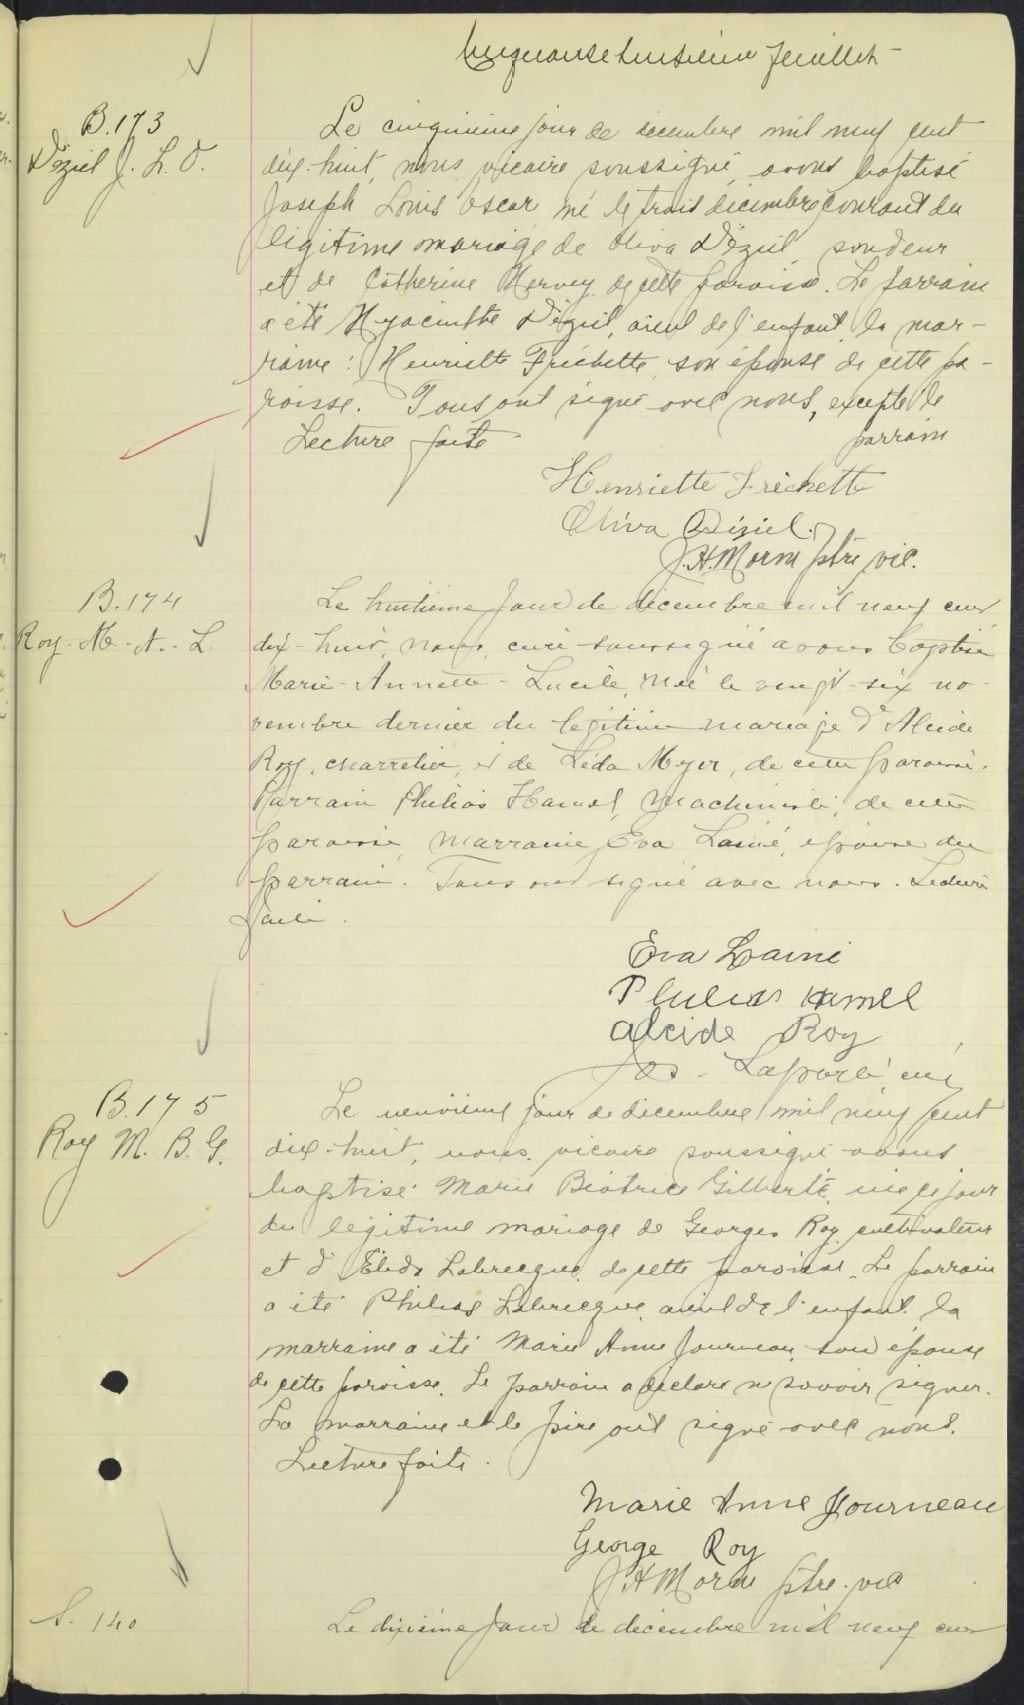 Cinquante huitième feuillet
B.173
Déziel J. L. O.
Le cinquième jour de décembre mil neuf cent
dix-huit, nous vicaire soussigné, avons baptisé
Joseph Louis Oscar né le trois décembre courant du
légitime mariage de Oliva Déziel, soudeur
et de Catherine Hervey de cette paroisse. Le parrain
a été Hyacinthe Déziel, aieul de l'enfant, la mar-
raine : Henriette Fréchette son épouse de cette pa-
roisse. Tous ont signé avec nous, excepté le
Lecture faite parrain
Henriette Fréchette
Oliva Déziel.
J. H. Morin ptre vic.
B.174
Roy - M. - A. - L.
Le huitième jour de décembre mil neuf cent
dix-huit, nous, curé soussigné avons baptisé
Marie-Annette-Lucile, née le vingt-six no-
vembre dernier du légitime mariage d'Alcide
Roy, charretier, et de Léda Myer, de cette paroisse.
Parrain Philias Hamel, machiniste, de cette
paroisse, marraine Eva Lainé, épouse du
parrain. Tous ont signé avec nous. Lecture
faite.
Eva Lainé
Philias Hamel
Alcide Roy
Jos. Laporte curé
B.175
Roy M. B. G.
Le neuvième jour de décembre mil neuf cent
dix-huit, nous vicaire soussigné avons
baptisé Marie Béatrice Gilberte, née ce jour
du légitime mariage de Georges Roy, cultivateur
et d'Elida Labrecque de cette paroisse. Le parrain
a été Philias Labrecque aieul de l'enfant. la
marraine a été Marie Anne Journeau, son épouse
de cette paroisse. Le parrain a déclaré ne savoir signer.
La marraine et le père ont signé avec nous.
Lecture faite.
Marie Anne Journeau
George Roy
J H Morin ptre. vic
S. 140
Le dixième jour de décembre mil neuf cent